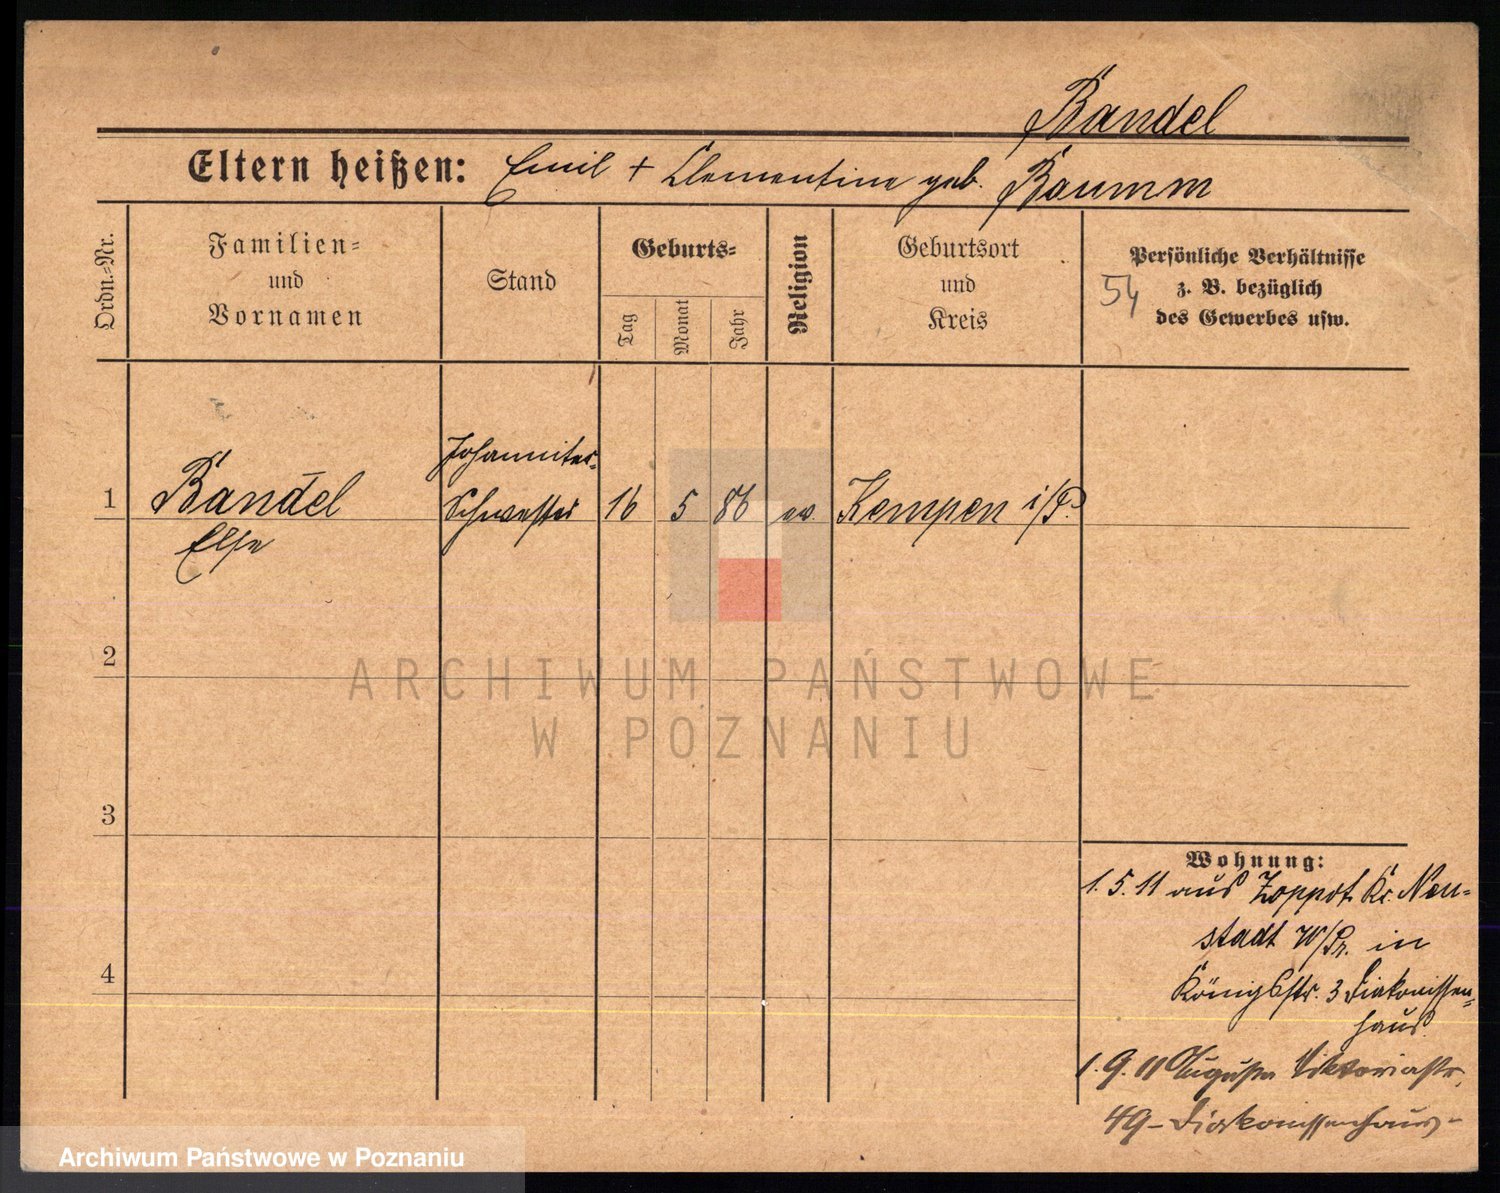 Bandel
Eltern heißen: Emil + Clementine geb. Baumm
Ordn.-Nr.
Familien-
und
Vornamen
Stand
Geburts-
Tag
Monat
Jahr
Religion
Geburtsort
und
Kreis
Persönliche Verhältnisse
z. B. bezüglich
des Gewerbes usw.
54
Johanniter-
1 Bandel Schwester 16 5 86 ev. Kempen i/P.
Else
2
ARCHIWUM PAŃSTWOWE
W POZNANIU
3
Wohnung:
1.5.11 aus Zoppot Kr. Neu-
stadt W/Pr. in
4
Königsstr. 3 Diakonissen-
haus
1.9.11 Augusta Viktoriastr.
49 - Diakonissenhaus -
Archiwum Państwowe w Poznaniu